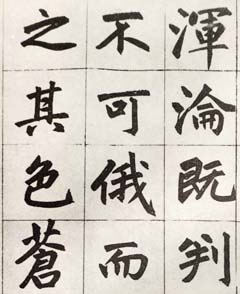 渾淪既判
不可俄而
之其色蒼